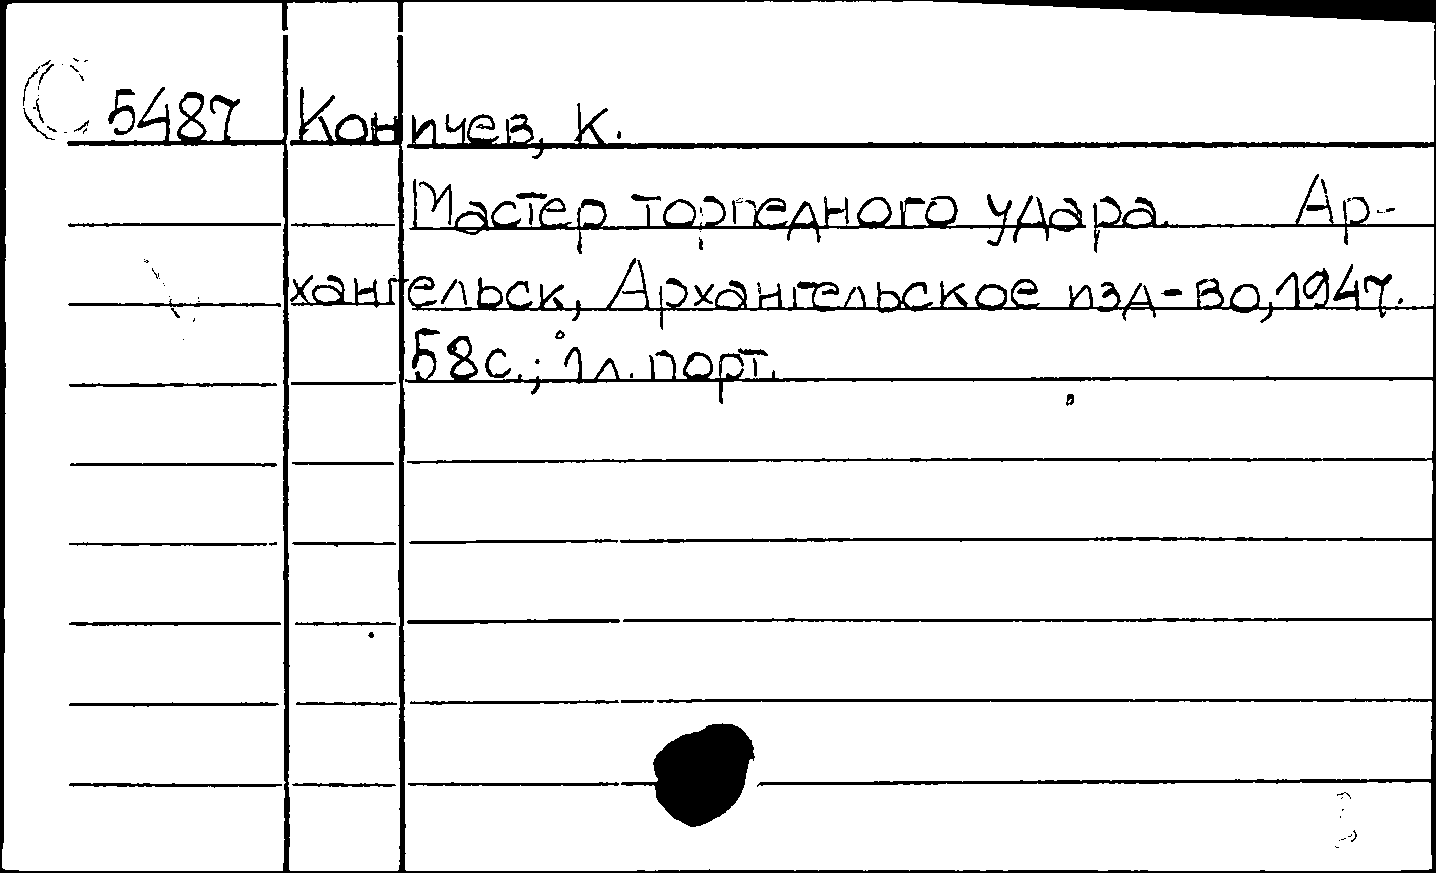 С 5487 Коничев, К.
Мастер торпедного удара. Ар-
хангельск, Архангельское изд-во, 1947.
58с.; 1л. порт.